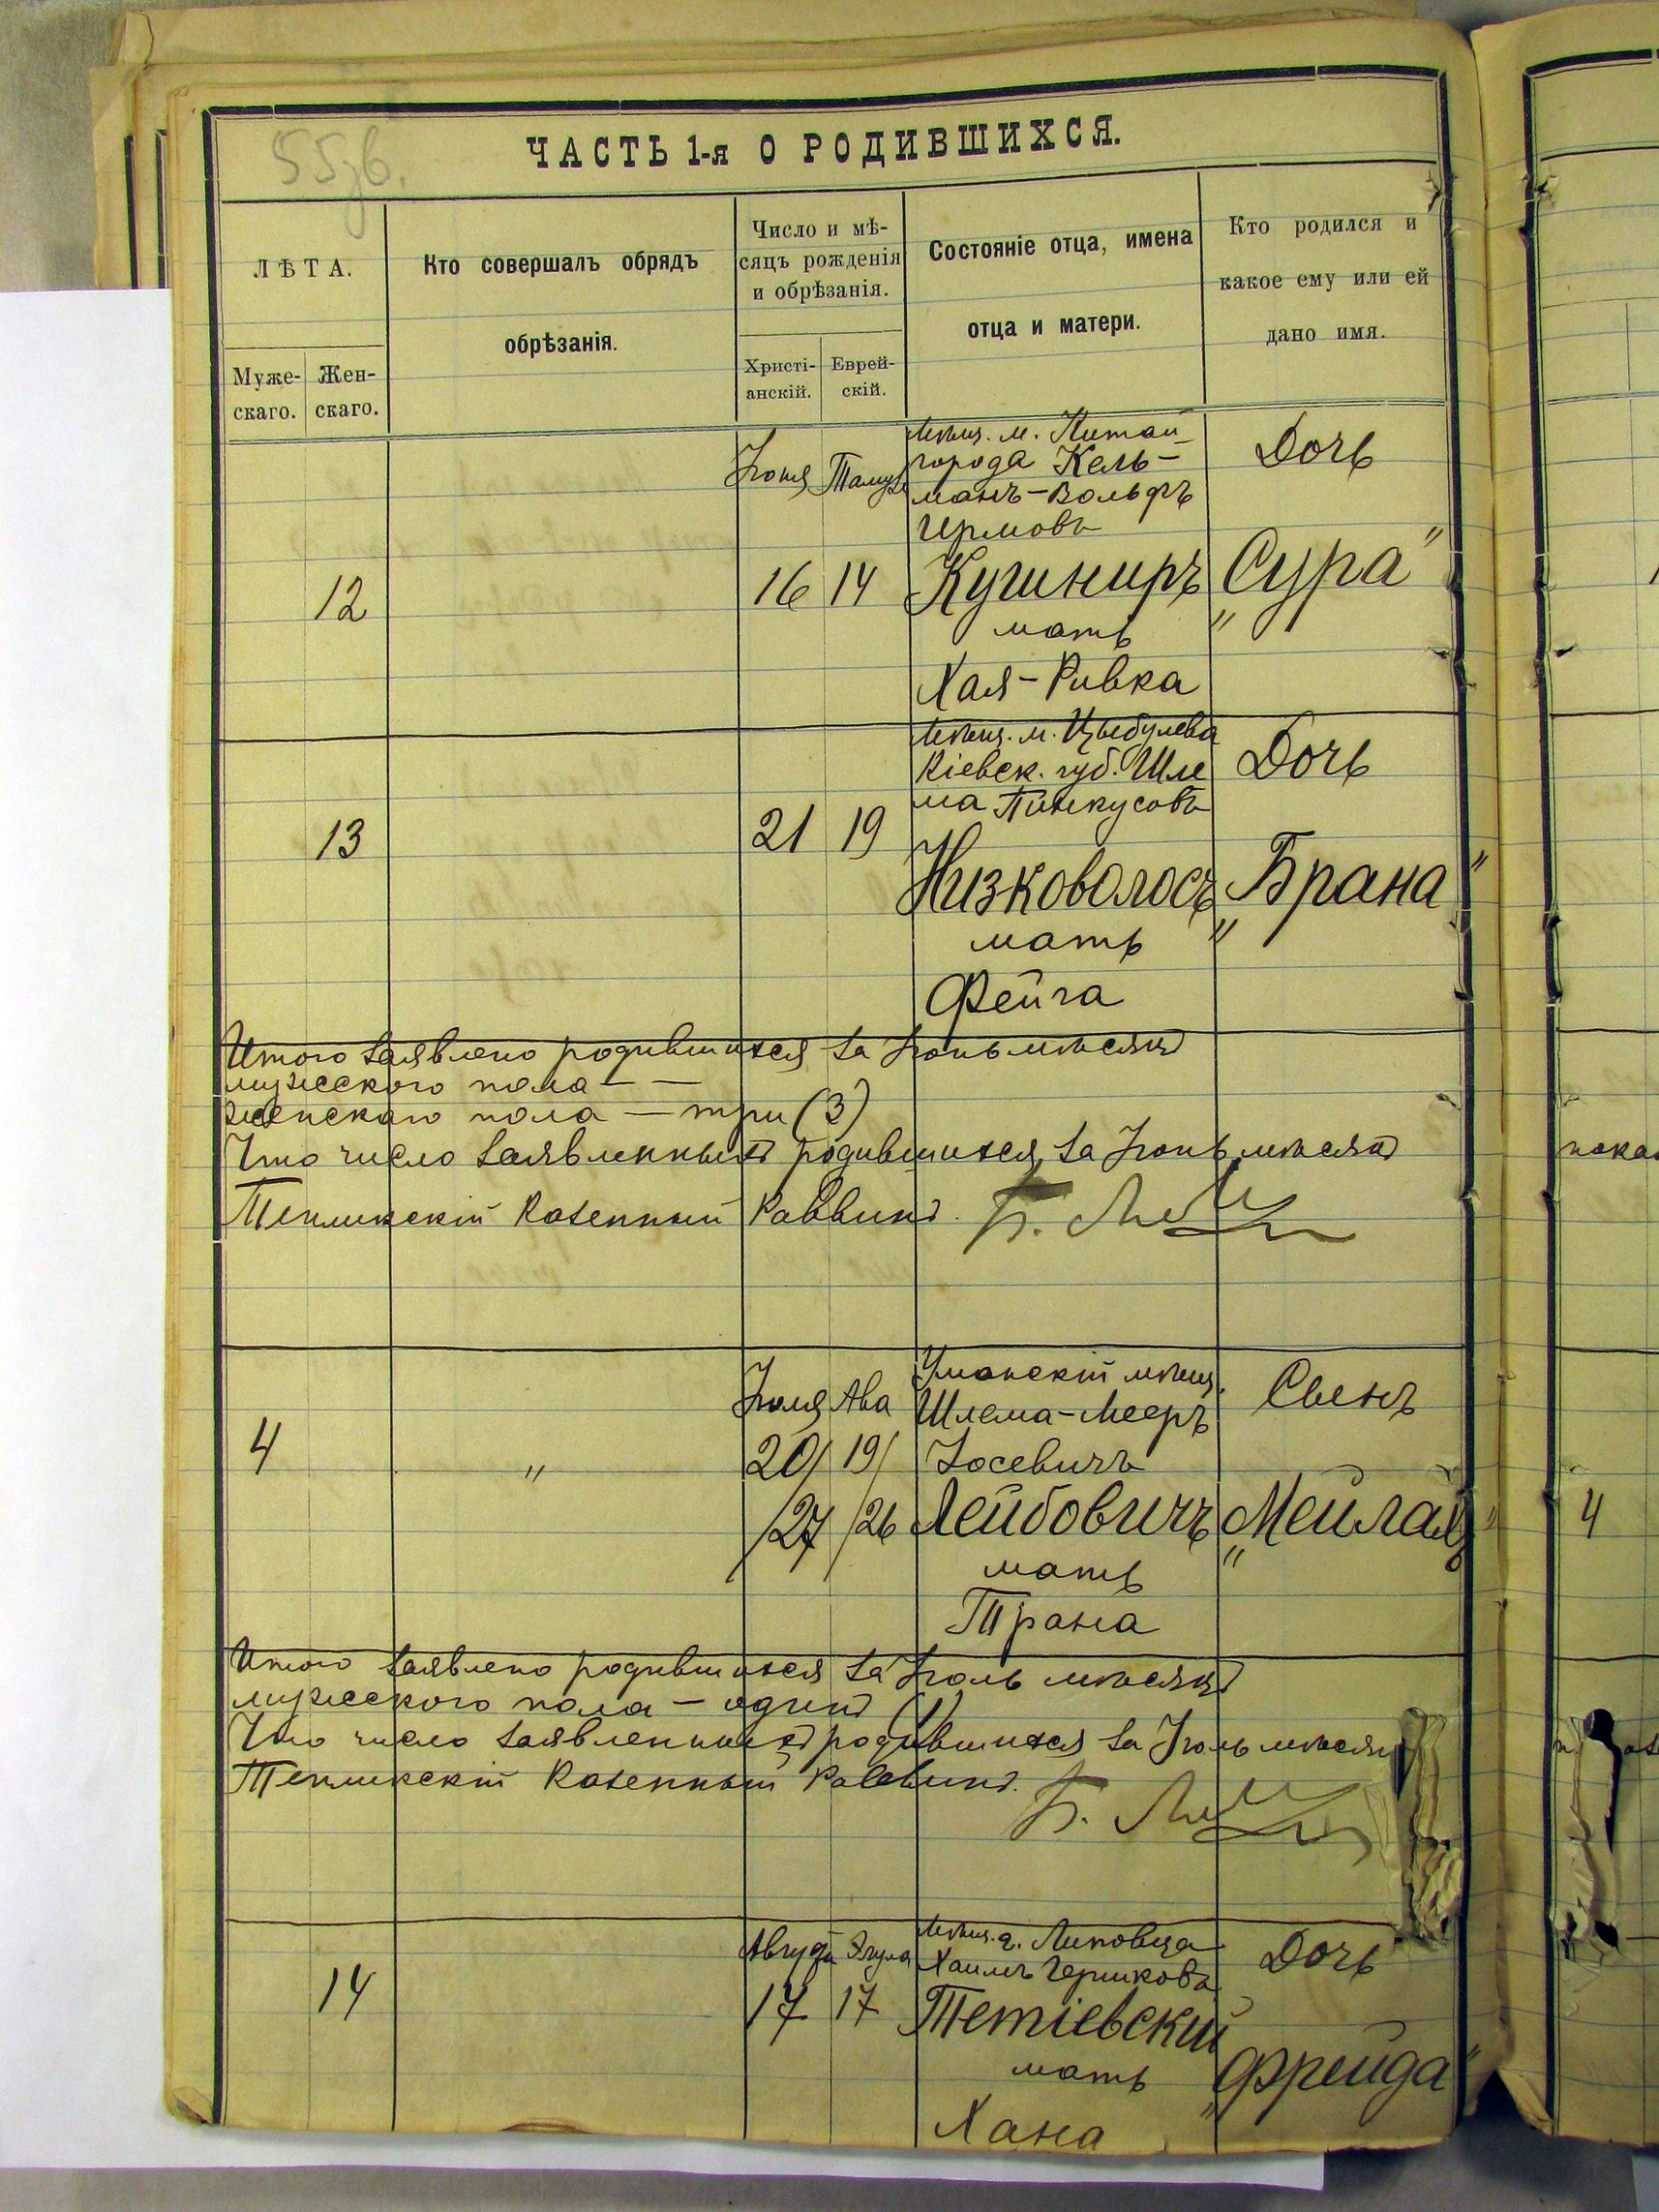 55зв.
ЧАСТЬ 1-я О РОДИВШИХСЯ.
ЛѢТА.
Муже-
скаго.
Жен-
скаго.
Кто совершалъ обрядъ
обрѣзанія.
Число и мѣ-
сяцъ рожденія
и обрѣзанія.
Христі-
анскій.
Еврей-
скій.
Состояніе отца, имена
отца и матери.
Кто родился и
какое ему или ей
дано имя.
12
Іюня
16
Тамуз
14
Мѣщ. м. Китай
города Кель-
манъ-Вольфъ
Кушниръ
мать
Хая-Ривка
Дочь
"Сура"
13
21
19
Мѣщ. м. Цыбулева
Кіевск. губ. Шле
ма Пинкусовъ
Низковолосъ
мать
Фейга
Дочь
"Брана"
Итого заявлено родившихся за Іюнь мѣсяцъ
мужеского пола — —
женскаго пола — три (3)
Что число заявленныхъ родившихся за Іюнь мѣсяцъ
Тепликскій Казенный Раввинъ. Б.
4
"
Іюля
20/
/27
Ава
19/
/26
Уманскій мѣщ.
Шлема-Мееръ
Іосевичъ
Лейбовичъ
мать
Трана
Сынъ
"Мейлахъ"
Итого заявлено родившихся за Іюль мѣсяцъ
мужеского пола — одинъ (1)
Что число заявленныхъ родившихся за Іюль мѣсяцъ
Тепликскій Казенный Раввинъ. Б.
14
Августа
17
Элула
17
Мѣщ. г. Липовца
Хаимъ Гершковъ
Тетіевскій
мать
Хана
Дочь
"Фрейда"
4